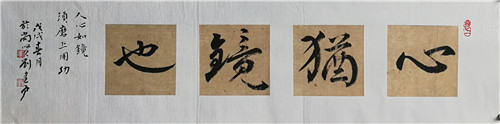 心猶鏡也
人心如鏡
須磨上用功
戊戌春月